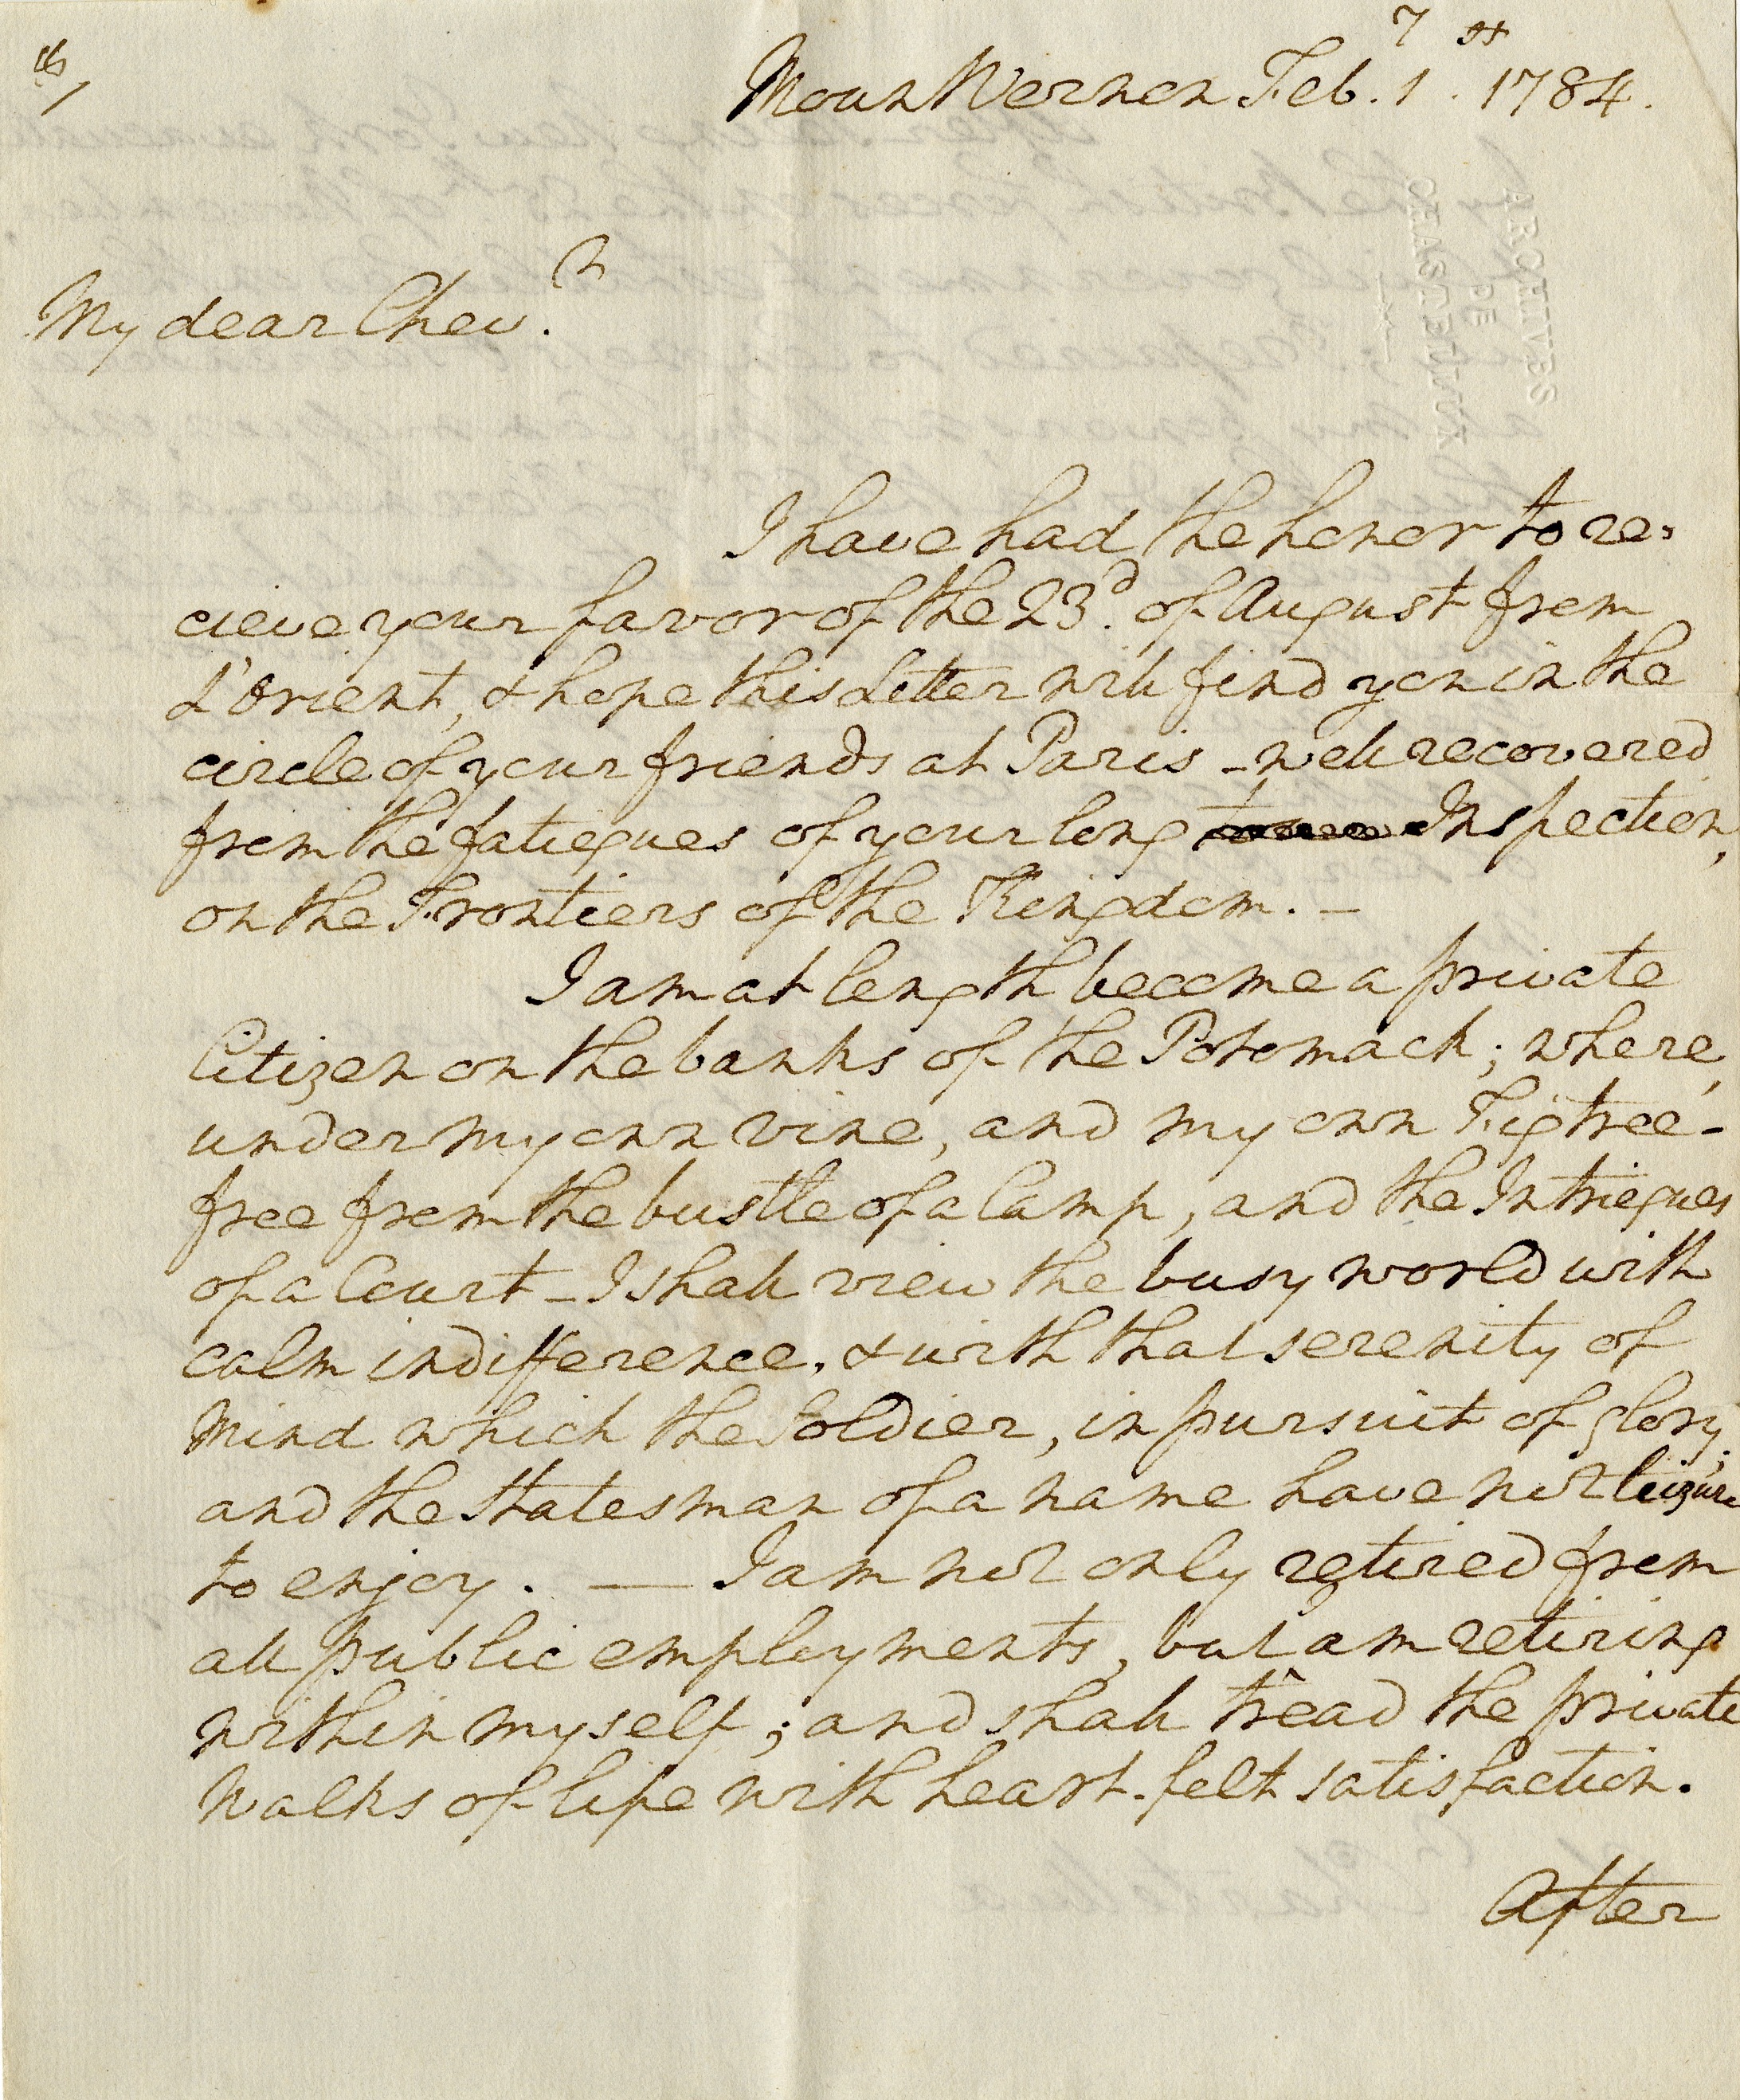 Mount Vernon Feb. 1st. 1784.
My dear Chevr.
ARCHIVES
DE
CHASTELLUX
I have had the honor to re=
cieve your favor of the 23d. of August from
L'Orient, & hope this Letter will find you in the
circle of your friends at Paris - well recovered
from the fatiegues of your long Inspection,
on the Frontiers of the Kingdom. -
I am at length become a private
Citizen on the banks of the Potomack; where,
under my own vine, and my own Figtree -
free from the bustle of a Camp, and the Intriegues
of a Court - I shall view the busy world with
calm indifference, & with that serenity of
Mind which the Soldier, in pursuit of glory,
and the Statesman of a name have not leizure
to enjoy. — I am not only retired from
all public employments, but am retiring
within myself; and shall tread the private
Walks of life with heart-felt satisfaction.
After